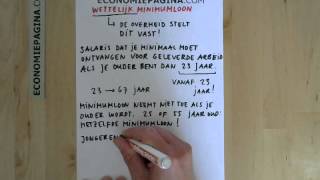 ECONOMIEPAGINA.COM
WETTELIJK MINIMUMLOON
↳ DE OVERHEID STELT
DIT VAST!
SALARIS DAT JE MINIMAAL MOET
ONTVANGEN VOOR GELEVERDE ARBEID
ALS JE OUDER BENT DAN 23 JAAR.
23 → 67 JAAR
VANAF 23
JAAR!
MINIMUMLOON NEEMT NIET TOE ALS JE
OUDER WORDT. 25 OF 55 JAAR OUD:
HETZELFDE MINIMUMLOON!
JONGEREN
ECONOMIEPAGINA.COM